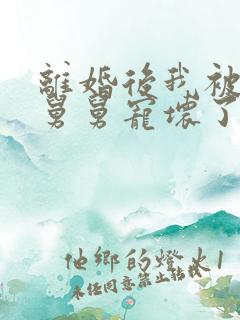 離婚後我被
舅舅寵壞了
他鄉的燈火1
未經同意禁止轉載